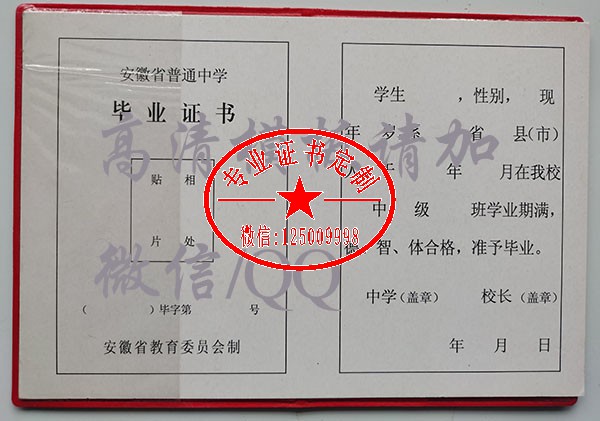 安徽省普通中学
毕业证书
贴 相
片 处
( )毕字第 号
安徽省教育委员会制
学生 ,性别, 现
年 岁系 省 县(市)
年 月在我校
中 级 班学业期满,
德、智、体合格,准予毕业。
中学(盖章) 校长(盖章)
年 月 日
高清模板请加
微信/QQ
专业证书定制
微信:125009998